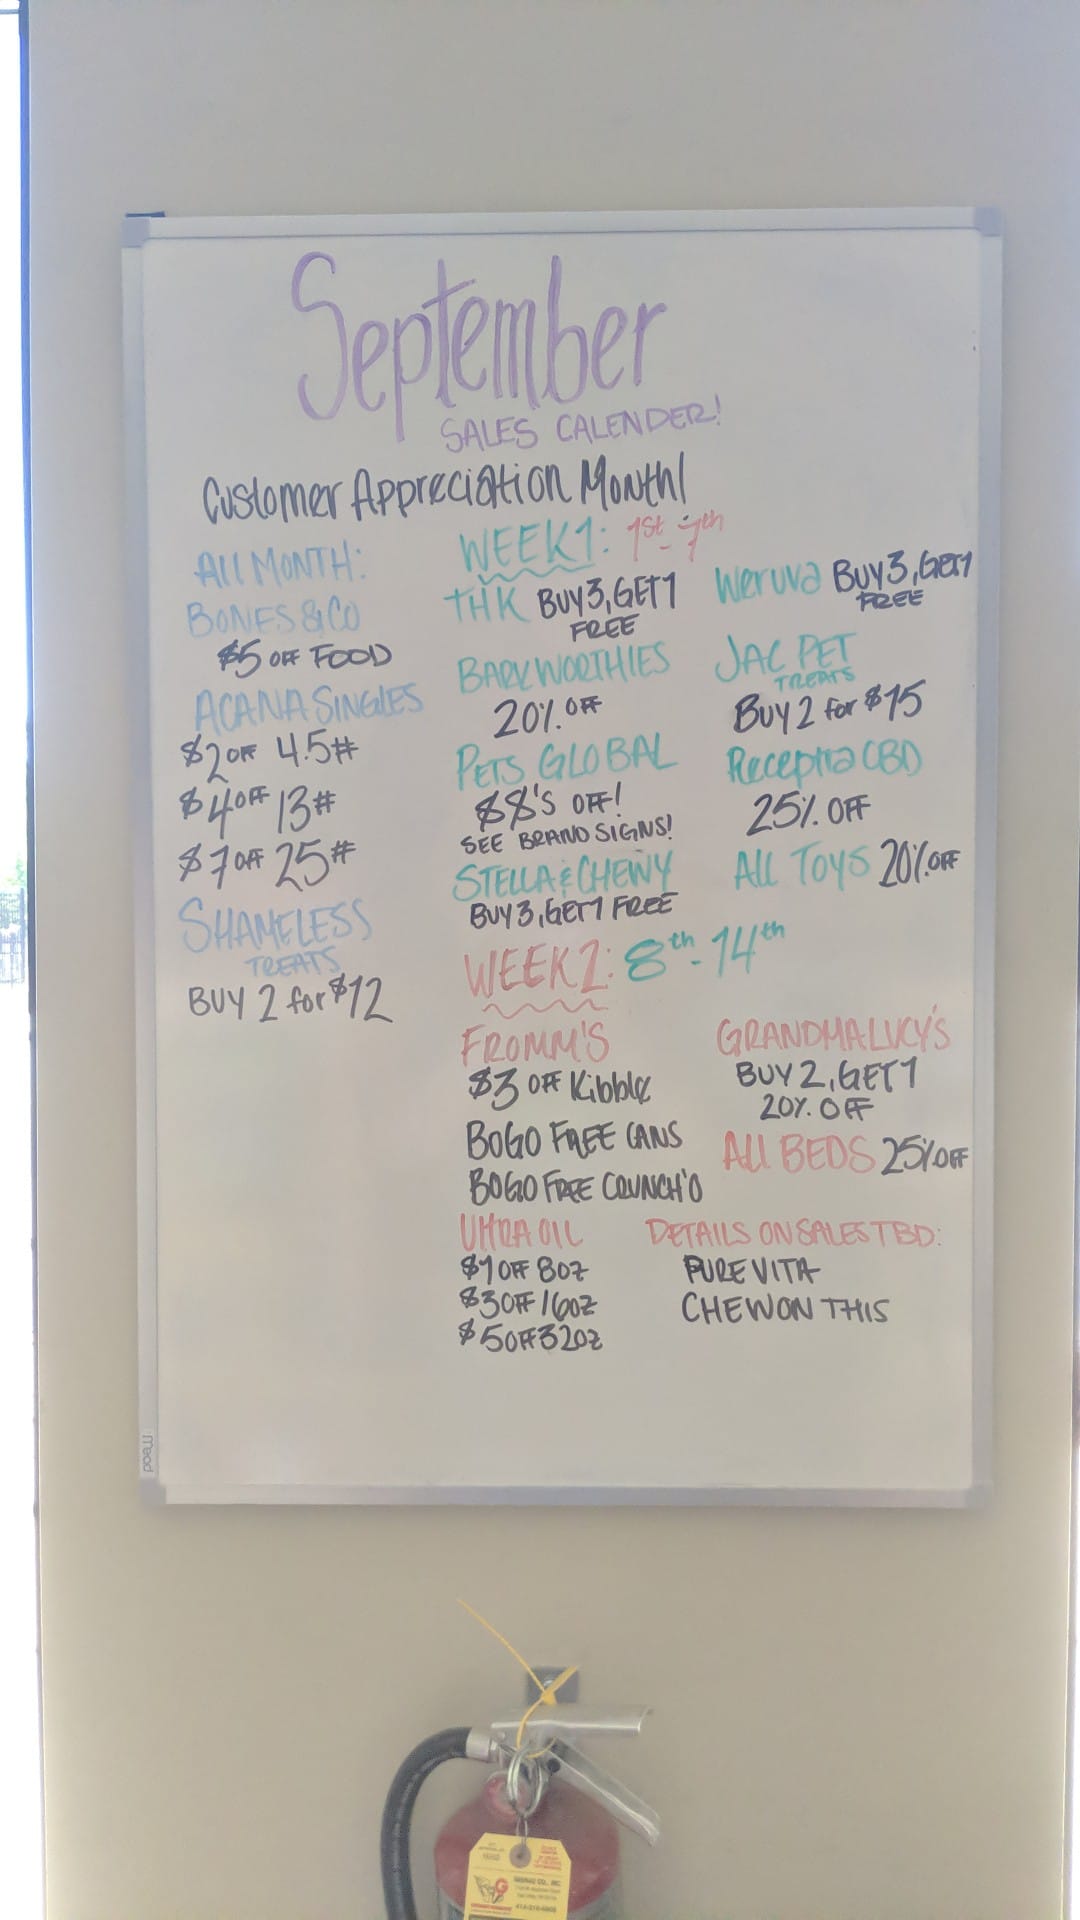 September
SALES CALENDER!
Customer Appreciation Month!
All MONTH:
BONES & CO
$5 OFF FOOD
ACANA SINGLES
$2 OFF 4.5#
$4 OFF 13#
$7 OFF 25#
SHAMELESS
TREATS
BUY 2 for $12
WEEK 1: 1st-7th
THK BUY 3, GET 1
FREE
BARKWORTHIES
20% OFF
PETS GLOBAL
$8'S OFF!
SEE BRAND SIGNS!
STELLA & CHEWY
BUY 3, GET 1 FREE
Weruva BUY 3, GET 1
FREE
JAC PET
TREATS
BUY 2 for $15
Receptra CBD
25% OFF
All TOYS 20% OFF
WEEK 2: 8th-14th
FROMM'S
$3 OFF Kibble
BOGO FREE CANS
BOGO FREE CRUNCH'O
UltRA OIL
$1 OFF 8oz
$3 OFF 16oz
$5 OFF 32oz
GRANDMA LUCY'S
BUY 2, GET 1
20% OFF
All BEDS 25% OFF
DETAILS ON SALES TBD:
PURE VITA
CHEW ON THIS
Mead